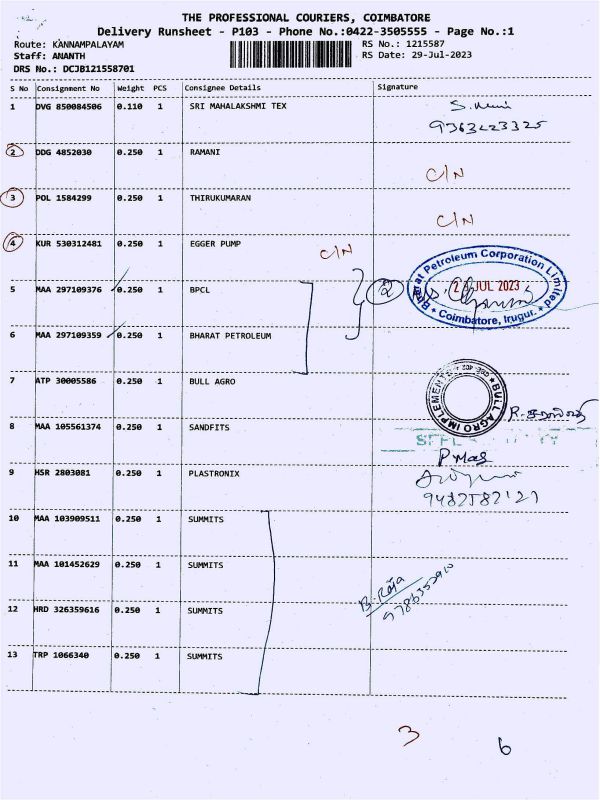 THE PROFESSIONAL COURIERS, COIMBATORE
Delivery Runsheet - P103 - Phone No.:0422-3505555 - Page No.:1
Route: KANNAMPALAYAM
Staff: ANANTH
DRS No.: DCJB121558701
RS No.: 1215587
RS Date: 29-Jul-2023
S No Consignment No Weight PCS Consignee Details Signature
1 DVG 850084506 0.110 1 SRI MAHALAKSHMI TEX
9363223325
2 DDG 4852030 0.250 1 RAMANI C/N
3 POL 1584299 0.250 1 THIRUKUMARAN C/N
4 KUR 530312481 0.250 1 EGGER PUMP C/N
Bharat Petroleum Corporation Limited
JUL 2023
Coimbatore, Irugur.
5 MAA 297109376 0.250 1 BPCL 2
6 MAA 297109359 0.250 1 BHARAT PETROLEUM
7 ATP 30005586 0.250 1 BULL AGRO
BULL AGRO IMPLEMENTS
8 MAA 105561374 0.250 1 SANDFITS
9 HSR 2803081 0.250 1 PLASTRONIX
9482582121
10 MAA 103909511 0.250 1 SUMMITS
11 MAA 101452629 0.250 1 SUMMITS
B. Raja
9786352910
12 HRD 326359616 0.250 1 SUMMITS
13 TRP 1066340 0.250 1 SUMMITS
3 6